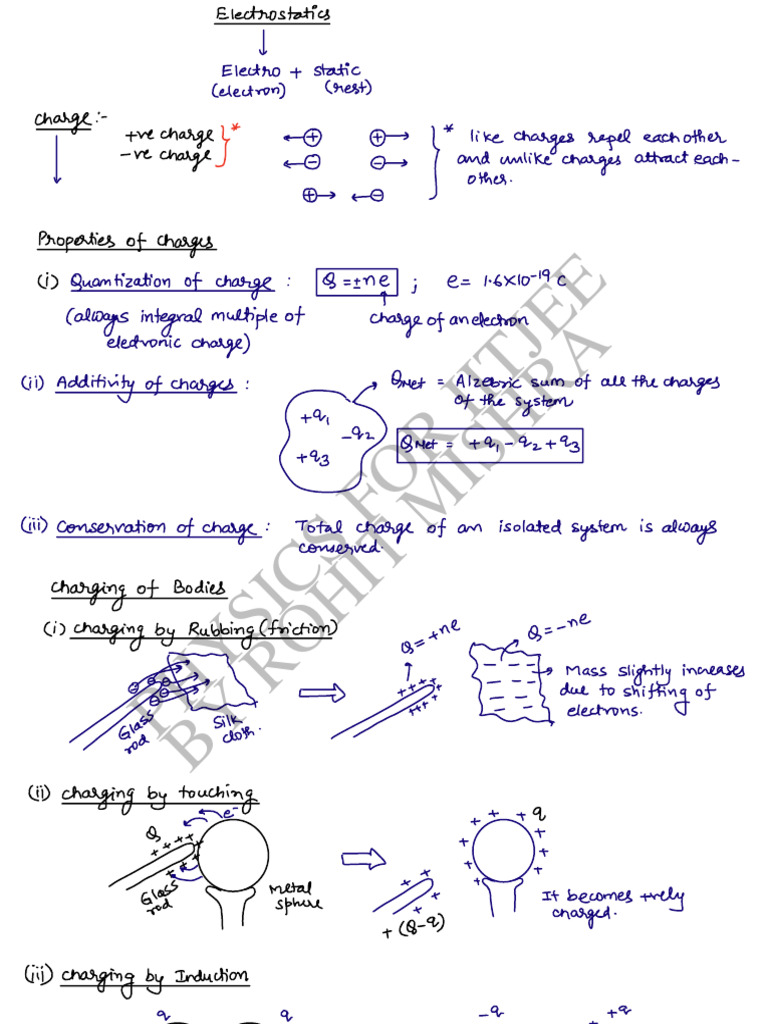 Electrostatics
Electro + static
(electron) (rest)
Charge :-
+ve charge
-ve charge
*
* like charges repel each other
and unlike charges attract each-
other.
Properties of Charges
(i) Quantization of charge : Q = ±ne ; e = 1.6×10⁻¹⁹ C
(always integral multiple of
electronic charge)
charge of an electron
(ii) Additivity of charges :
+q₁
-q₂
+q₃
QNet = Alzebric sum of all the charges
of the system
QNet = +q₁-q₂+q₃
(iii) Conservation of charge : Total charge of an isolated system is always
conserved.
Charging of Bodies
(i) Charging by Rubbing (friction)
Glass
rod
Silk
cloth.
Q=+ne
Q=-ne
Mass slightly increases
due to shifting of
electrons.
(ii) Charging by touching
Q
e⁻
Glass
rod
Metal
sphere
+(Q-q)
q
It becomes +vely
charged.
(iii) Charging by Induction
q
q
-q
+q
PHYSICS FOR IITJEE
BY ROHIT MISHRA